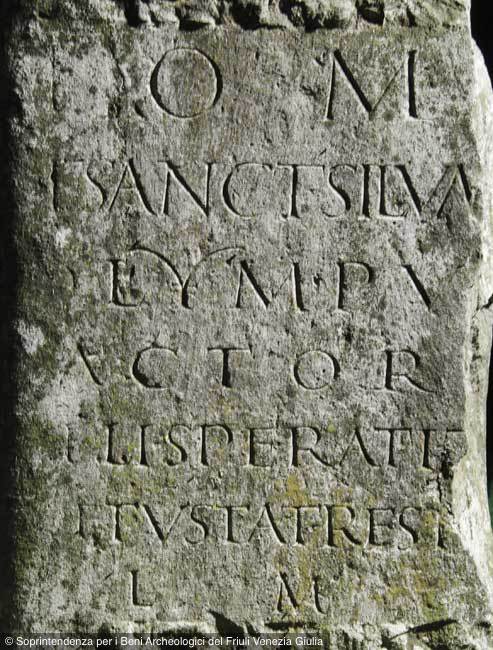 I O M
T SANCT·SILVA
OLYMPV
ACTOR
LI SPERATI
ETVSTATE REST
L M
© Soprintendenza per i Beni Archeologici del Friuli Venezia Giulia